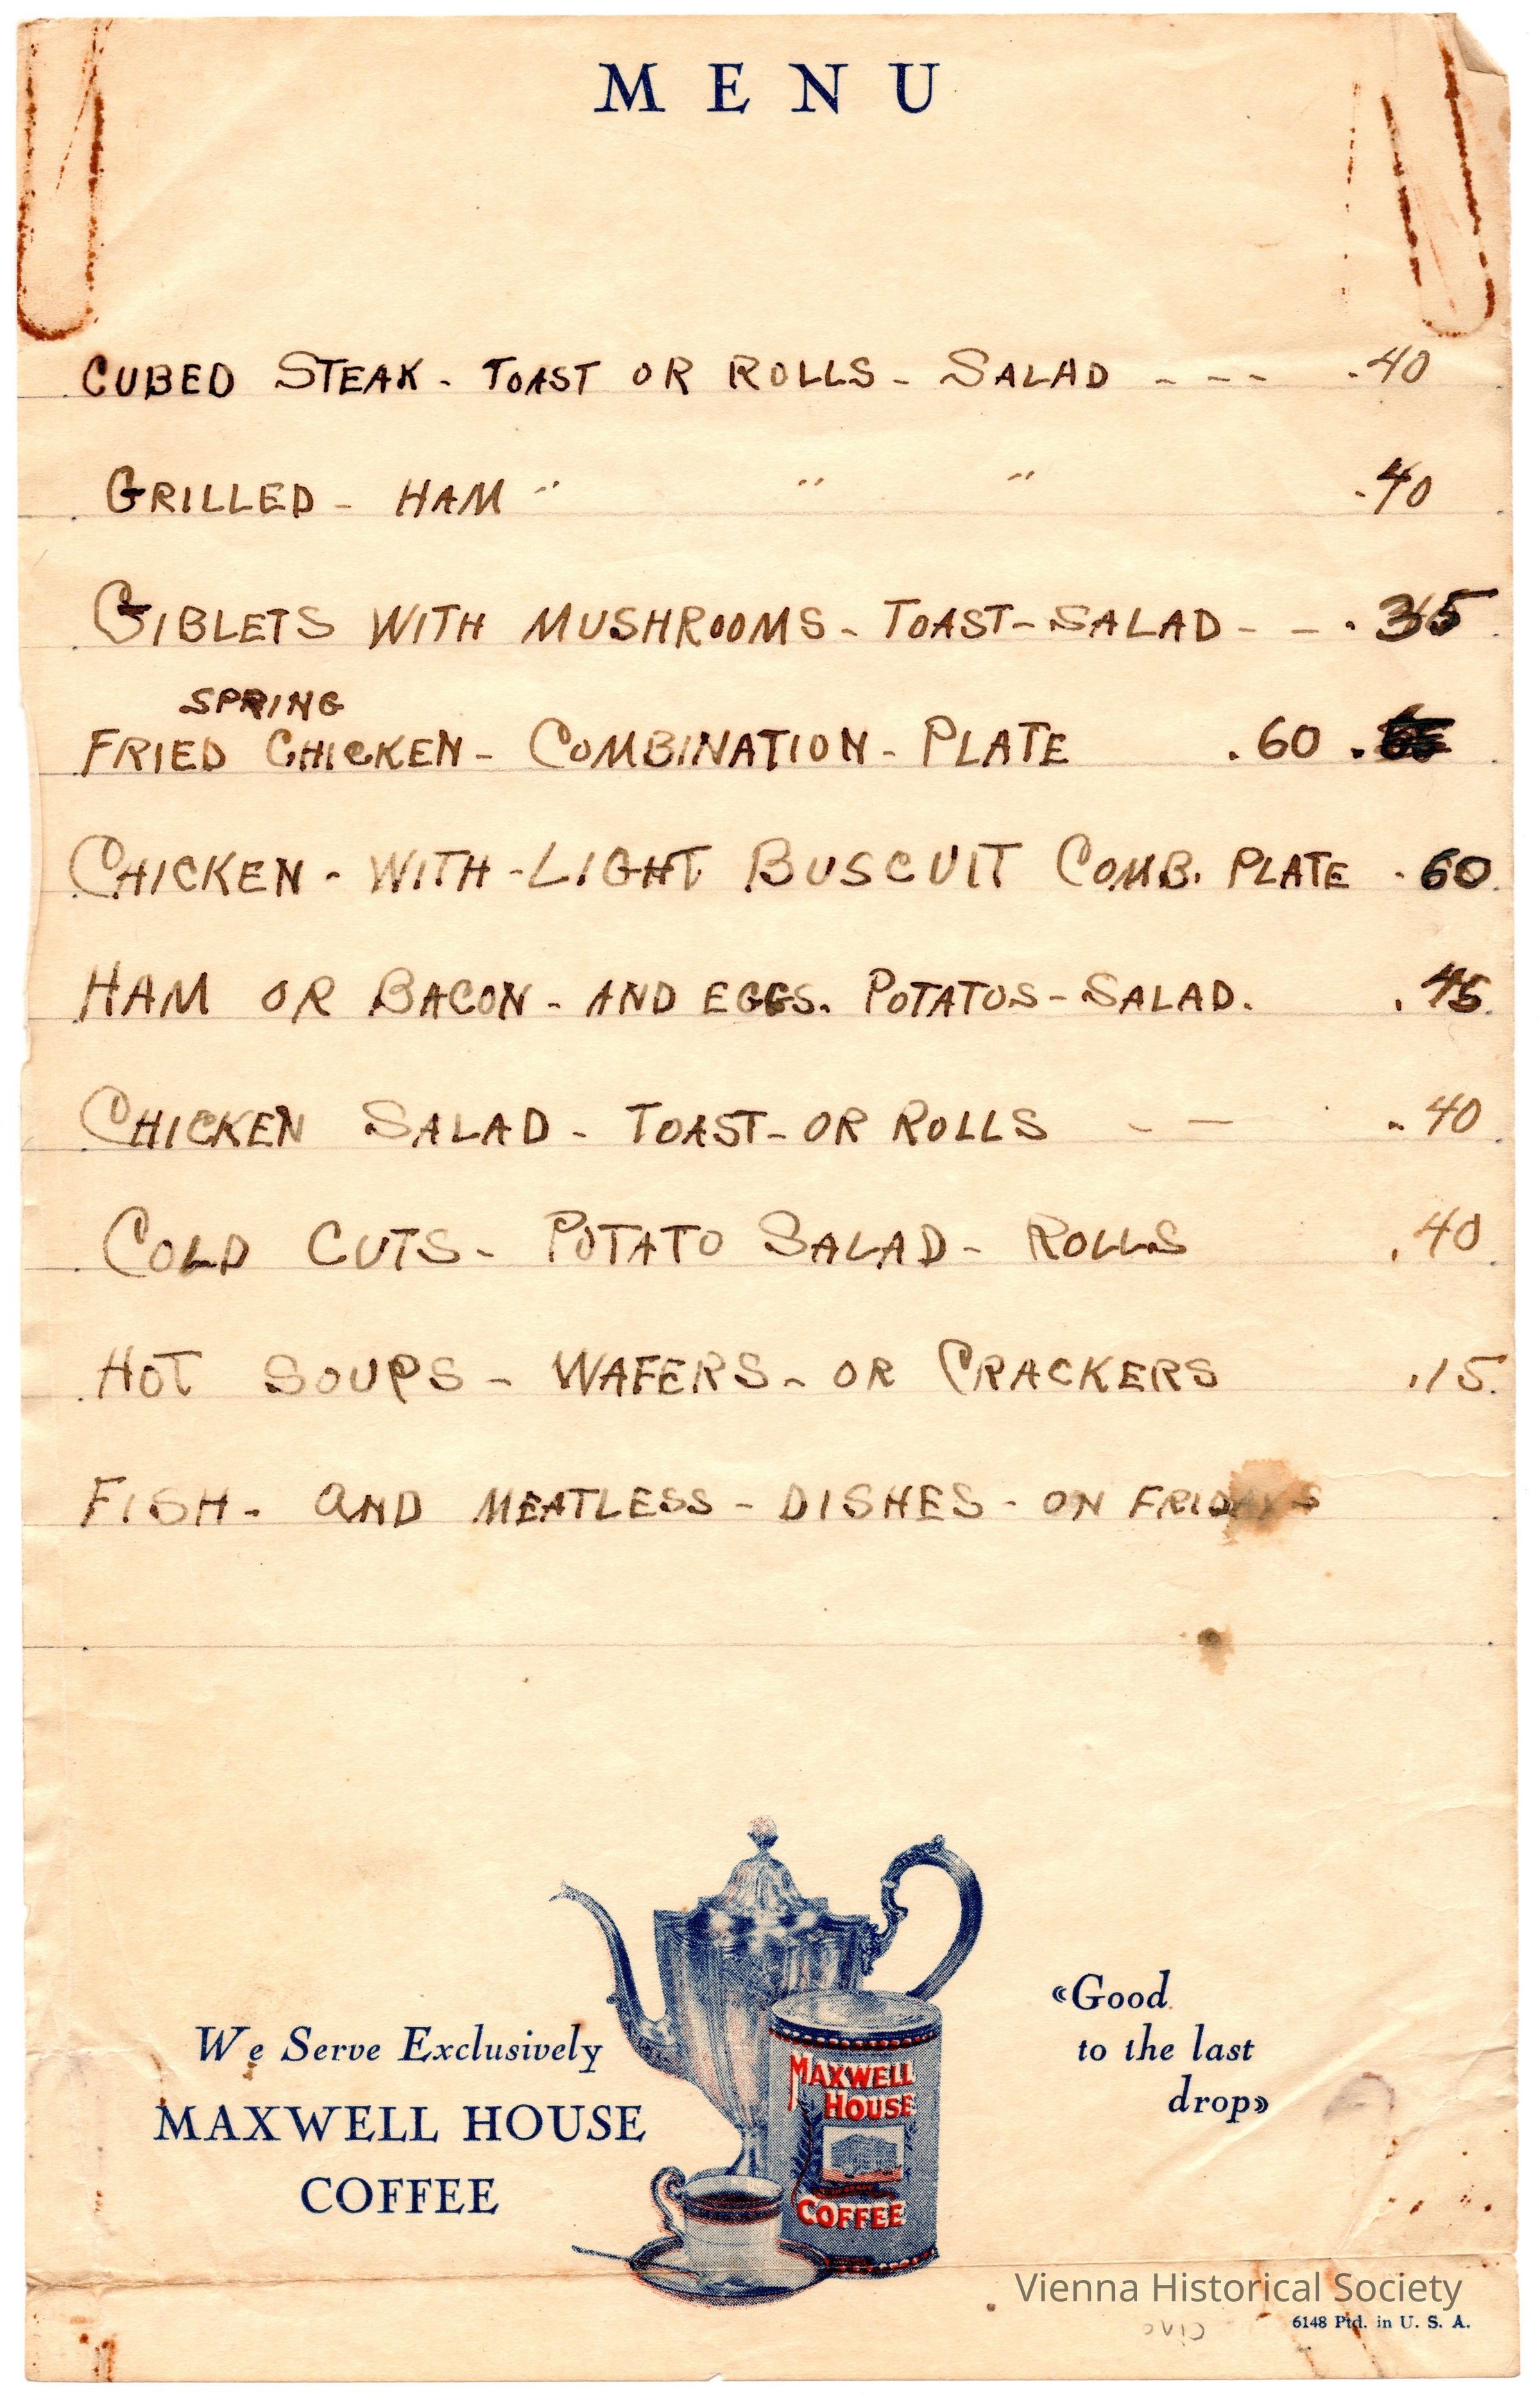 MENU
CUBED STEAK - TOAST OR ROLLS - SALAD - - - .40
GRILLED - HAM " " " .40
GIBLETS WITH MUSHROOMS - TOAST - SALAD - - .35
SPRING
FRIED CHICKEN - COMBINATION - PLATE .60
CHICKEN - WITH - LIGHT BUSCUIT COMB. PLATE .60
HAM OR BACON - AND EGGS. POTATOS - SALAD. .45
CHICKEN SALAD - TOAST - OR ROLLS - — .40
COLD CUTS - POTATO SALAD - ROLLS .40
HOT SOUPS - WAFERS - OR CRACKERS .15
FISH - AND MEATLESS - DISHES - ON FRIDAYS
We Serve Exclusively
MAXWELL HOUSE
COFFEE
MAXWELL
HOUSE
COFFEE
«Good
to the last
drop»
Vienna Historical Society
6148 Ptd. in U. S. A.